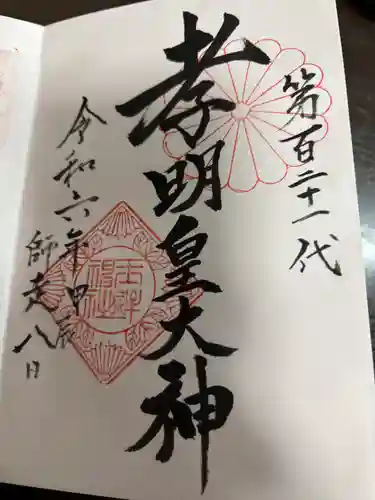 第百二十一代
孝明皇大神
令和六年甲辰
師走八日